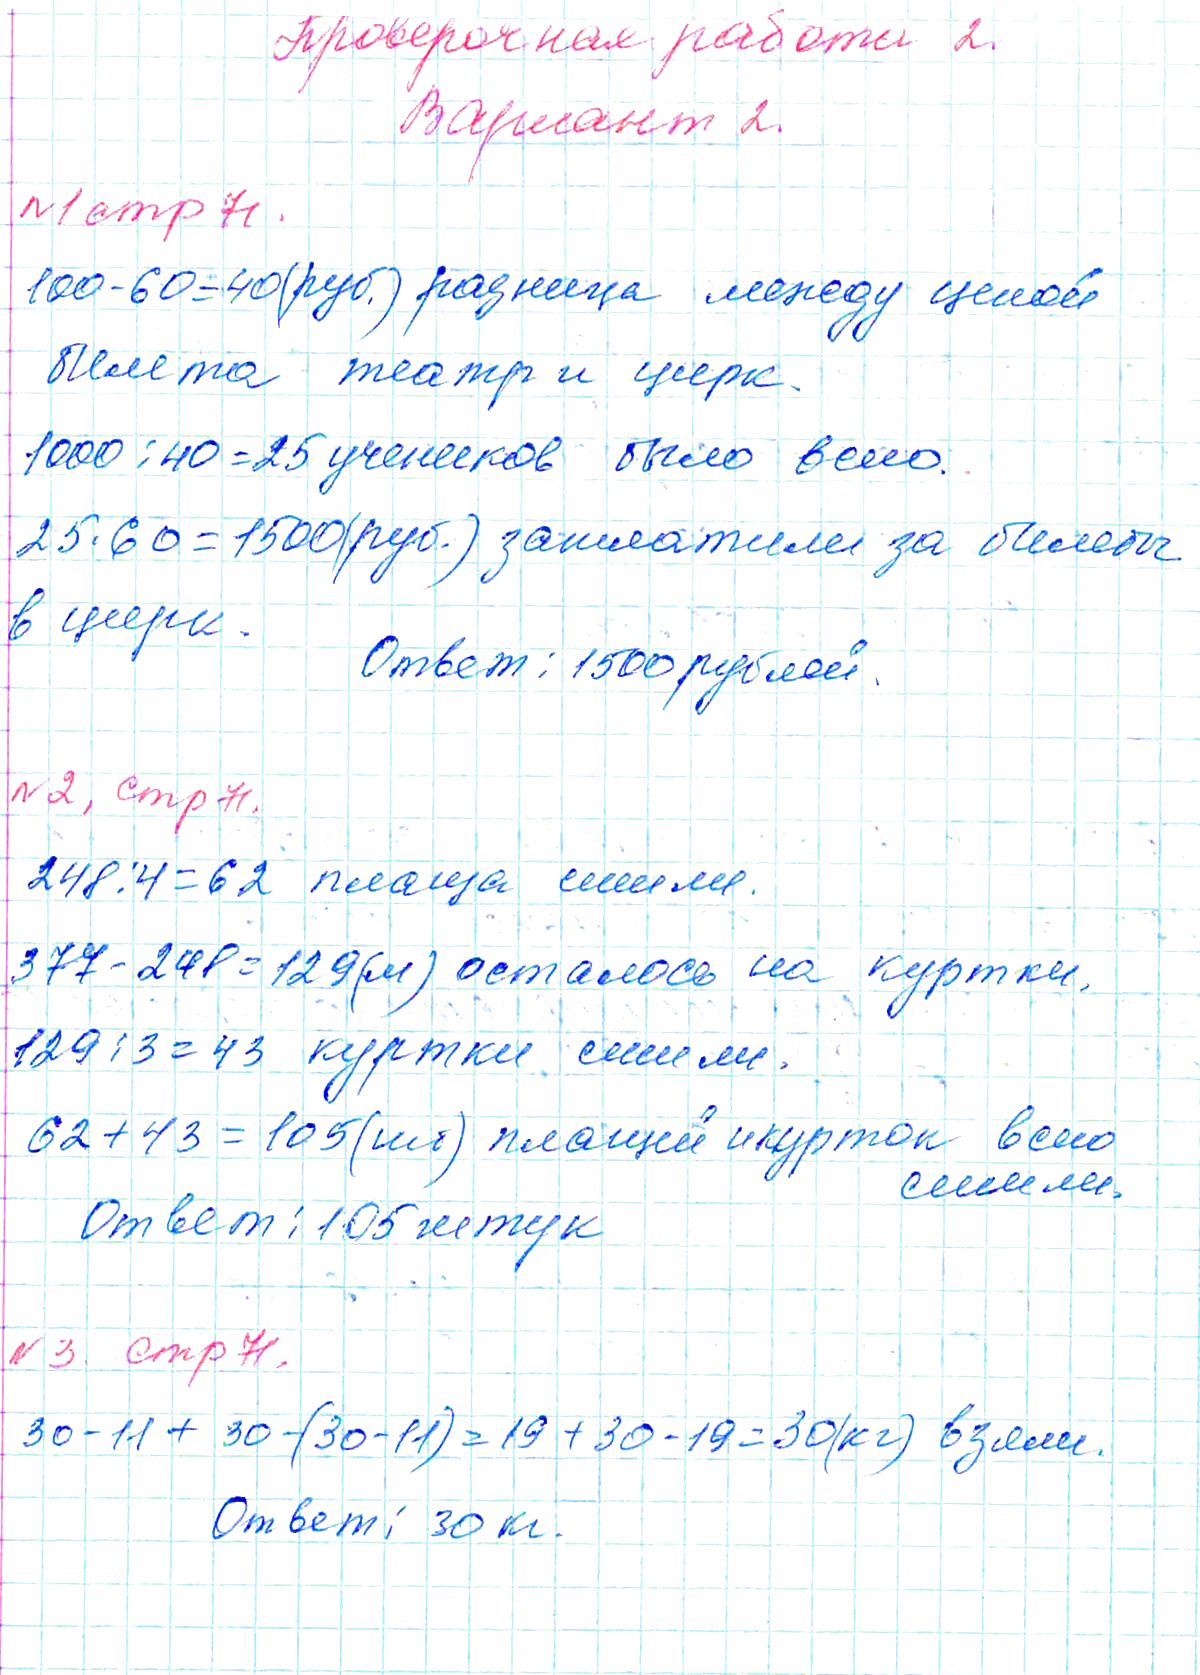 Проверочная работа 2.
Вариант 2.
№1 стр 71.
100-60=40(руб.) разница между ценой
билета театр и цирк.
1000:40=25 учеников было всего.
25·60=1500(руб.) заплатили за билеты
в цирк.
Ответ: 1500 рублей.
№2, стр 71.
248:4=62 плаща сшили.
377-248=129(м) осталось на куртки.
129:3=43 куртки сшили.
62+43=105(шт) плащей и курток всего
сшили.
Ответ: 105 штук
№3. стр 71.
30-11+30-(30-11)=19+30-19=30(кг) взяли.
Ответ: 30 кг.